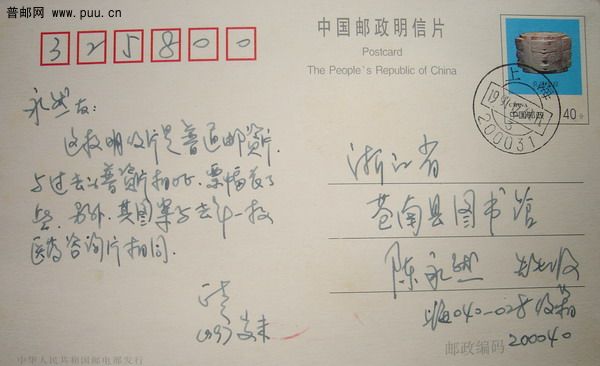 普邮网
www.puu.cn
325800
中国邮政明信片
Postcard
The People's Republic of China
中国邮政
40分
上海
200031
永然友：
这枚明信片是普通邮资片，
与过去的普资片相比，票幅
些。另外，其图案与去年一枚
医药咨询片相同。
1997岁末
浙江省
苍南县图书馆
陈永然
上海040-028信箱
邮政编码
200040
中华人民共和国邮电部发行